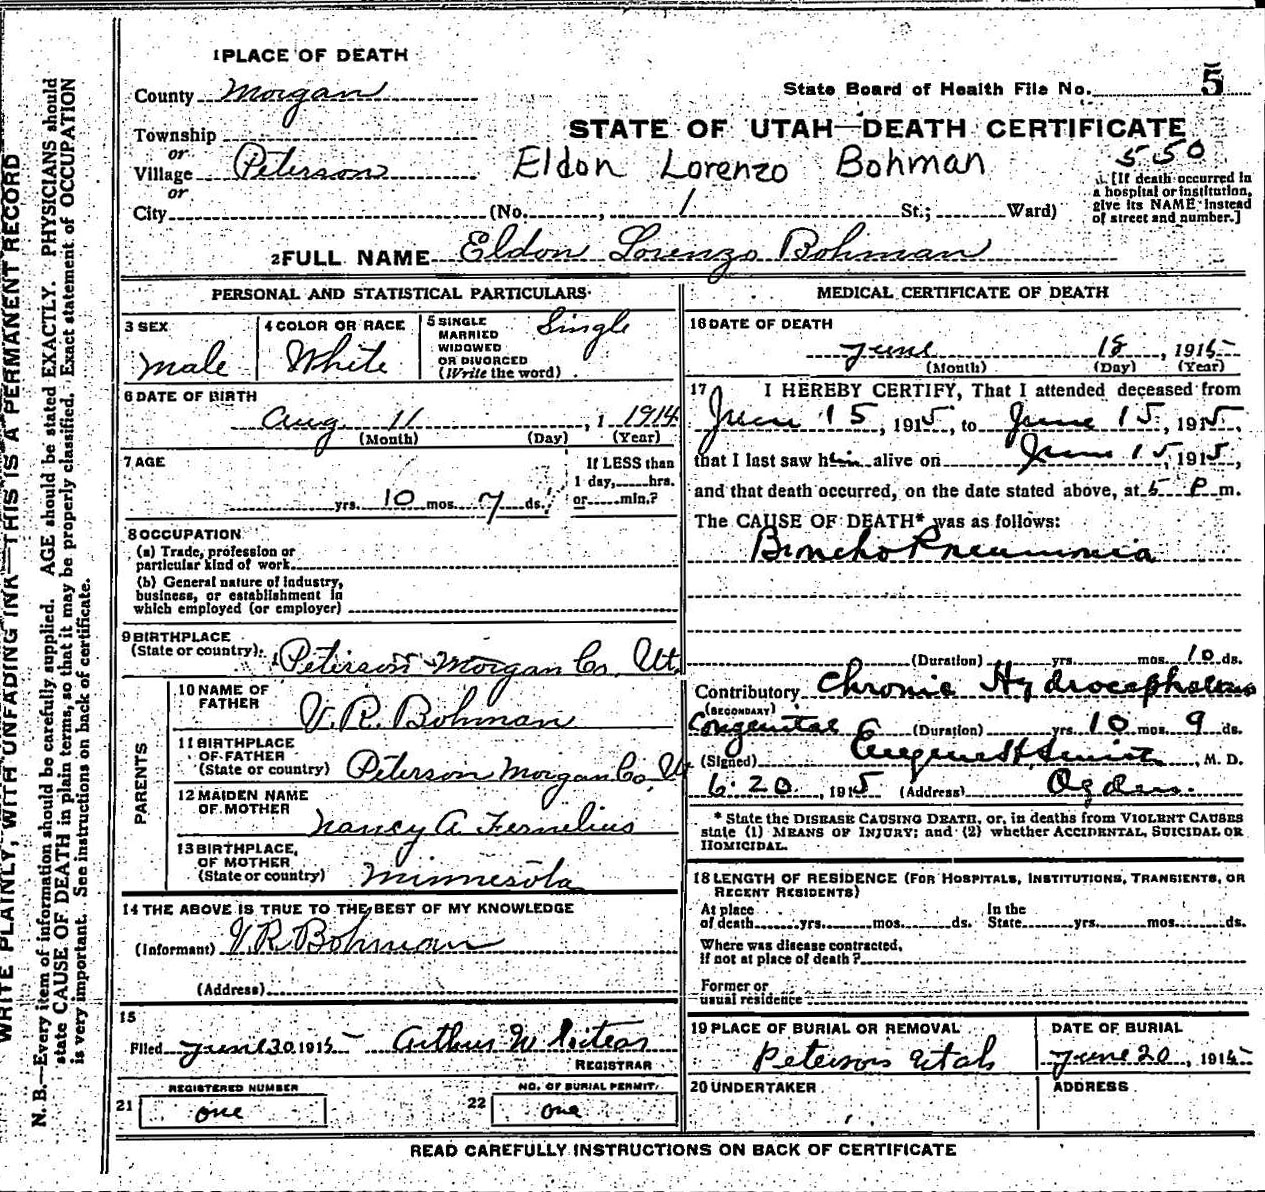 1 PLACE OF DEATH
County Morgan
State Board of Health File No. 5
Township
STATE OF UTAH—DEATH CERTIFICATE
or
Village Peterson
Eldon Lorenzo Bohman
550
or
[If death occurred in
a hospital or institution,
give its NAME instead
of street and number.]
City (No. , 1 St.; Ward)
2 FULL NAME Eldon Lorenzo Bohman
PERSONAL AND STATISTICAL PARTICULARS
3 SEX
Male
4 COLOR OR RACE
White
5 SINGLE
MARRIED
WIDOWED
OR DIVORCED
(Write the word)
Single
6 DATE OF BIRTH
Aug. 11 , 1 1914
(Month) (Day) (Year)
7 AGE
yrs. 10 mos. 7 ds.
If LESS than
1 day, hrs.
or min.?
8 OCCUPATION
(a) Trade, profession or
particular kind of work
(b) General nature of industry,
business, or establishment in
which employed (or employer)
9 BIRTHPLACE
(State or country) Peterson Morgan Co. Ut.
PARENTS
10 NAME OF
FATHER
V. R. Bohman
11 BIRTHPLACE
OF FATHER
(State or country) Peterson Morgan Co, Ut
12 MAIDEN NAME
OF MOTHER
Nancy A Fernelius
13 BIRTHPLACE
OF MOTHER
(State or country) Minnesota
14 THE ABOVE IS TRUE TO THE BEST OF MY KNOWLEDGE
(Informant) V. R Bohman
(Address)
15
Filed June 30 1915 Arthur W
REGISTRAR
REGISTERED NUMBER
21 one
NO. OF BURIAL PERMIT.
22 one
MEDICAL CERTIFICATE OF DEATH
16 DATE OF DEATH
June 18 , 1915
(Month) (Day) (Year)
17 I HEREBY CERTIFY, That I attended deceased from
June 15, 1915, to June 15, 1915,
that I last saw him alive on June 15, 1915,
and that death occurred, on the date stated above, at 5 P m.
The CAUSE OF DEATH* was as follows:
Broncho Pneumonia
(Duration) yrs. mos. 10 ds.
Contributory Chronic Hydrocephalous
(SECONDARY)
Congenital (Duration) yrs. 10 mos. 9 ds.
(Signed) Eugene H Smith, M. D.
6. 20 , 1915 (Address) Ogden.
* State the DISEASE CAUSING DEATH, or, in deaths from VIOLENT CAUSES
state (1) MEANS OF INJURY; and (2) whether ACCIDENTAL, SUICIDAL OR
HOMICIDAL.
18 LENGTH OF RESIDENCE (FOR HOSPITALS, INSTITUTIONS, TRANSIENTS, OR
RECENT RESIDENTS)
At place
of death yrs. mos. ds.
In the
State yrs. mos. ds.
Where was disease contracted,
if not at place of death?
Former or
usual residence
19 PLACE OF BURIAL OR REMOVAL
Peterson Utah
DATE OF BURIAL
June 20 , 1915
20 UNDERTAKER
ADDRESS
READ CAREFULLY INSTRUCTIONS ON BACK OF CERTIFICATE
WRITE PLAINLY, WITH UNFADING INK—THIS IS A PERMANENT RECORD
N. B.—Every item of information should be carefully supplied. AGE should be stated EXACTLY. PHYSICIANS should
state CAUSE OF DEATH in plain terms, so that it may be properly classified. Exact statement of OCCUPATION
is very important. See instructions on back of certificate.